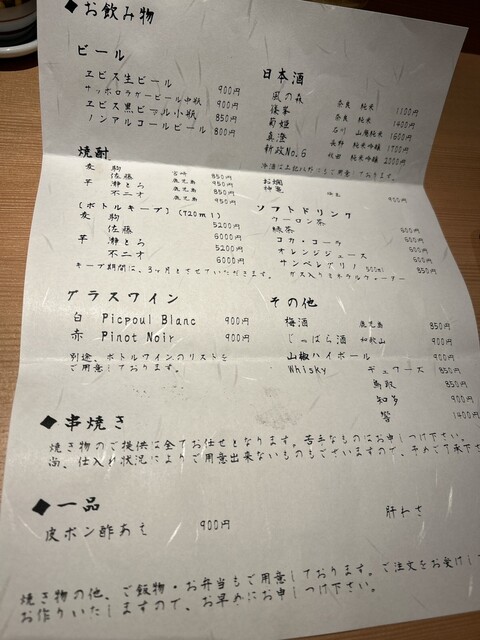 ◆お飲み物
ビール
ヱビス生ビール 900円
サッポロラガービール中瓶 900円
ヱビス黒ビール小瓶 850円
ノンアルコールビール 800円
日本酒
風の森 奈良 純米 1100円
篠峯 奈良 純米 1400円
菊姫 石川 山廃純米 1600円
真澄 長野 純米吟醸 1700円
新政No.6 秋田 純米吟醸 2000円
冷酒は上記以外にもご用意しております。
お燗
神亀 埼玉 900円
焼酎
麦 駒 宮崎 850円
佐藤 鹿児島 950円
芋 灘とら 鹿児島 850円
不二才 鹿児島 950円
[ボトルキープ] (720ml)
麦 駒 5200円
佐藤 6000円
芋 灘とら 5200円
不二才 6000円
キープ期間は、3ヶ月とさせていただきます。
ソフトドリンク
ウーロン茶 600円
緑茶 600円
コカ・コーラ 600円
オレンジジュース 600円
サンペレグリノ 500ml 850円
ガス入りミネラルウォーター
グラスワイン
白 Picpoul Blanc 900円
赤 Pinot Noir 900円
別途、ボトルワインのリストを
ご用意しております。
その他
梅酒 鹿児島 850円
じゃばら酒 和歌山 900円
山椒ハイボール 900円
Whisky 850円
鳥取 850円
知多 900円
響 1400円
◆串焼き
焼き物のご提供は全てお任せとなります。苦手なものはお申しつけ下さい。
尚、仕入れ状況によりご用意出来ないものもございますので、予めご了承下さ
◆一品
皮ポン酢あえ 900円
肝わさ
焼き物の他、ご飯物・お弁当もご用意しております。ご注文をお受けし
お作りいたしますので、お早めにお申しつけ下さい。